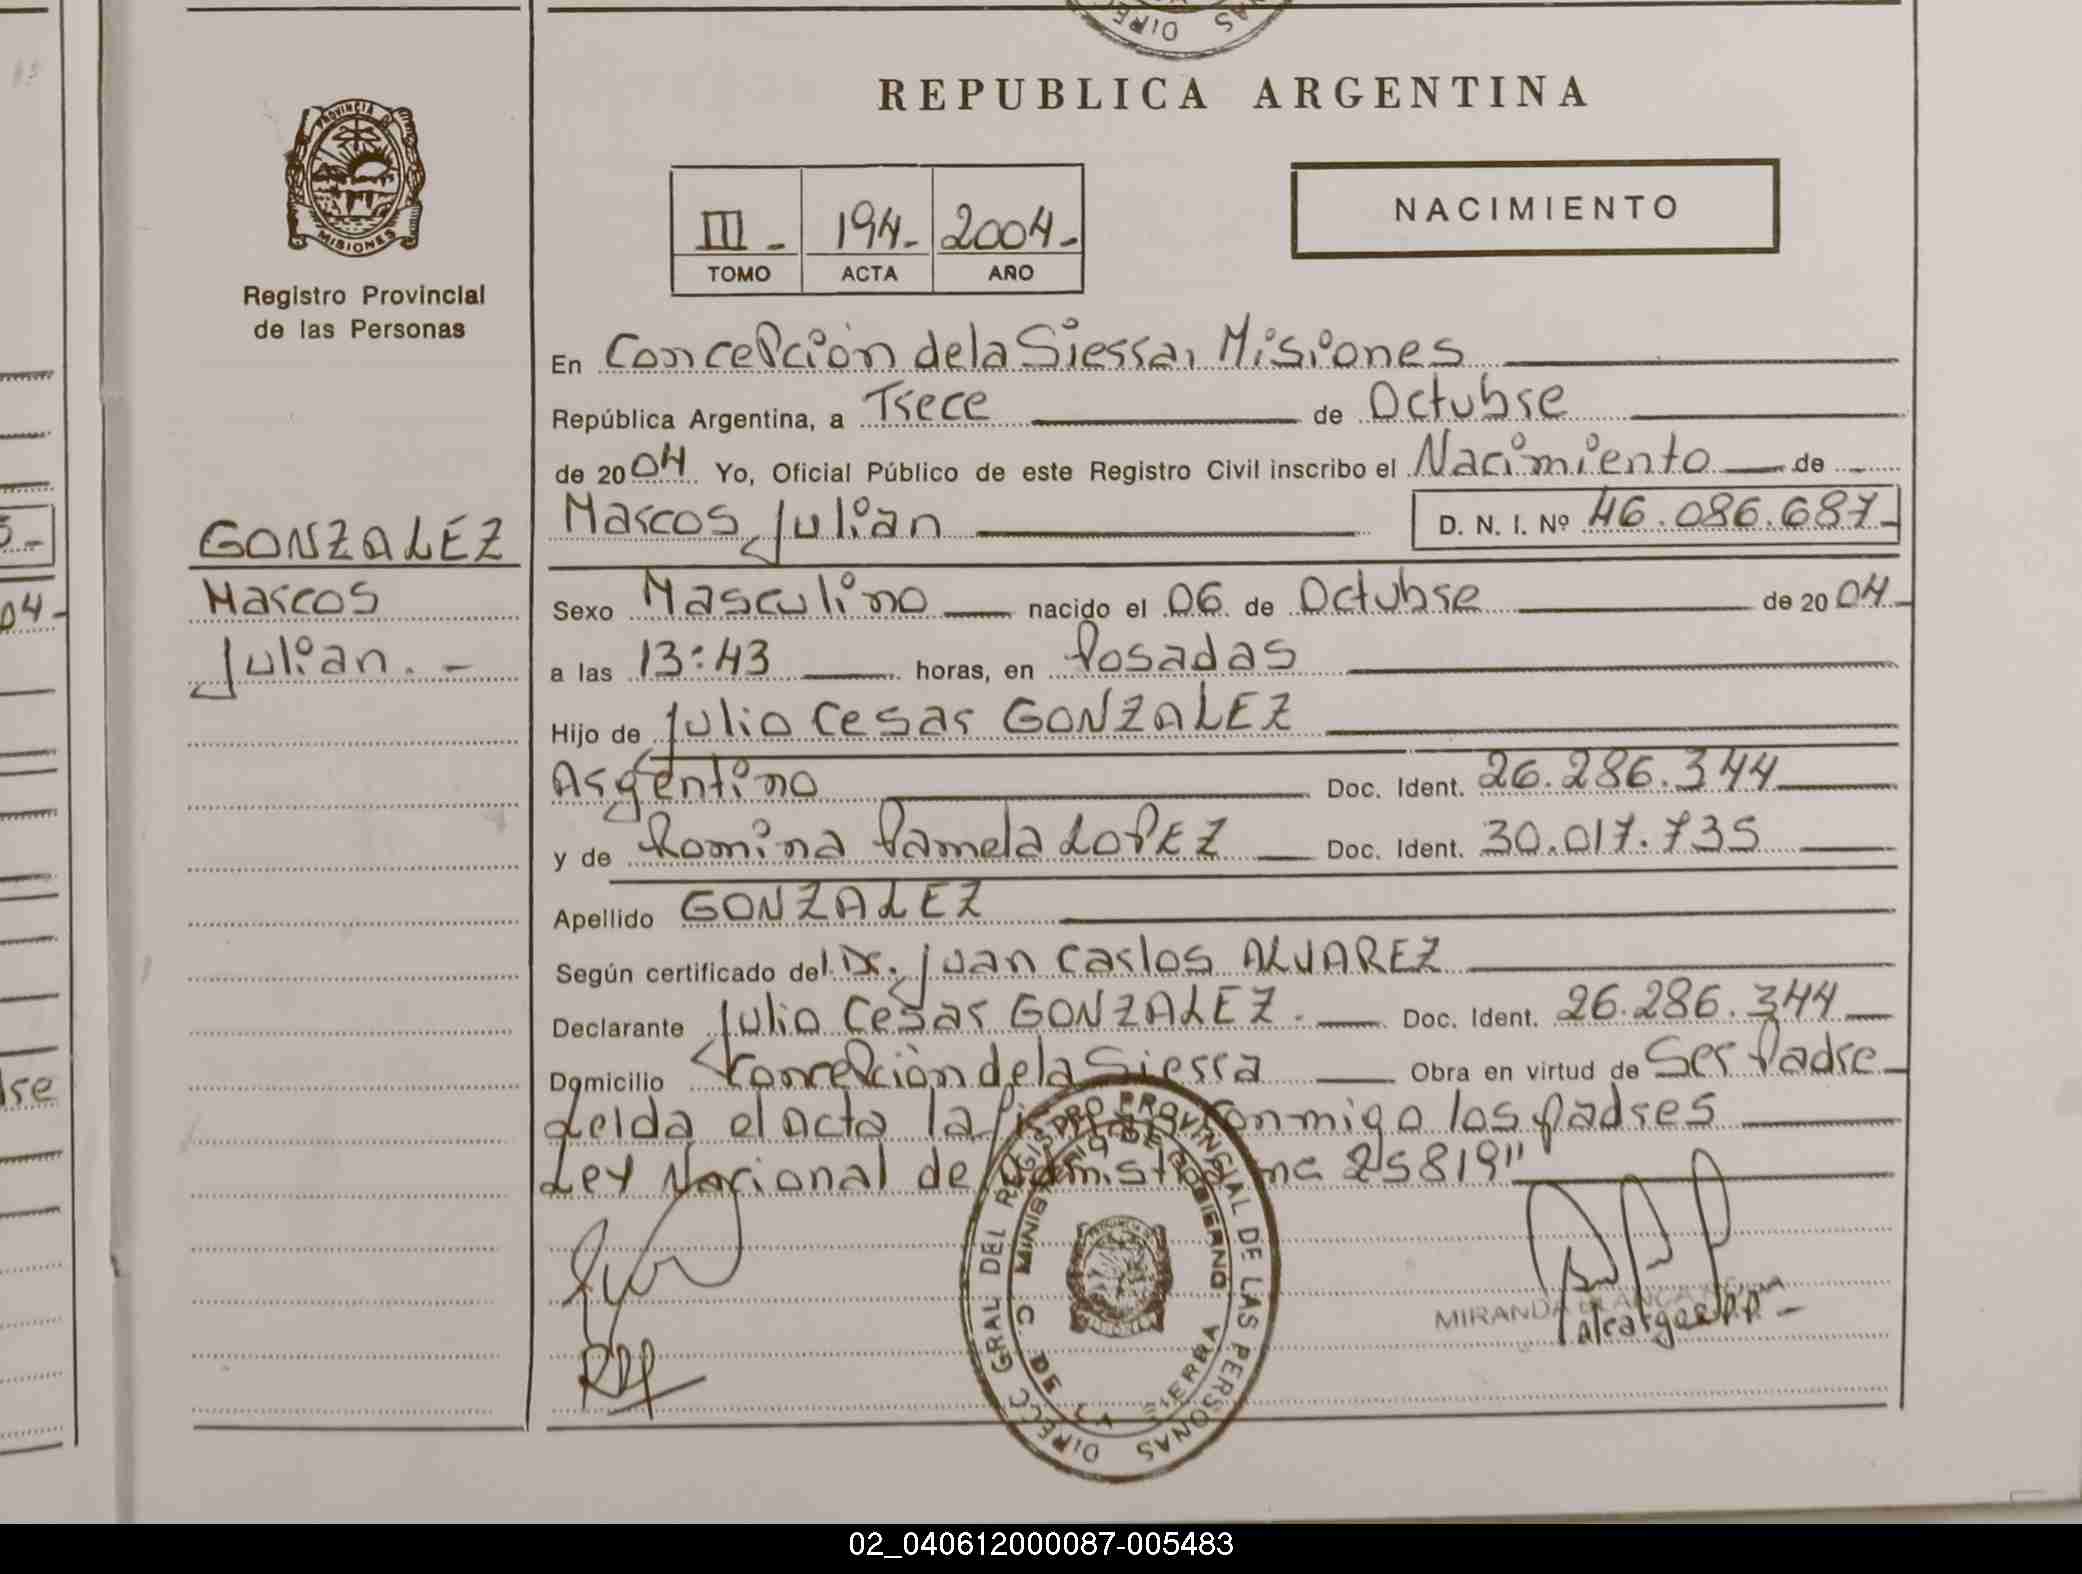 REPUBLICA ARGENTINA
PROVINCIA DE
MISIONES
Registro Provincial
de las Personas
GONZALEZ
Marcos
Julian. -
III -
194-
2004-
TOMO
ACTA
AÑO
NACIMIENTO
En Concepción de la Sierra, Misiones
República Argentina, a Trece de Octubre
de 2004 Yo, Oficial Público de este Registro Civil inscribo el Nacimiento de
Marcos Julian D. N. I. Nº 46.086.687-
Sexo Masculino nacido el 06 de Octubre de 2004-
a las 13:43 horas, en Posadas
Hijo de Julio Cesar GONZALEZ
Argentino Doc. Ident. 26.286.344
y de Romina Pamela LOPEZ Doc. Ident. 30.017.735
Apellido GONZALEZ
Según certificado del Dr. Juan Carlos ALVAREZ
Declarante Julio Cesar GONZALEZ. Doc. Ident. 26.286.344
Domicilio Concepción de la Sierra Obra en virtud de Ser Padre
Leida el acta la conmigo los padres
Ley Nacional de 25819"
DIRECC GRAL DEL REGISTRO PROVINCIAL DE LAS PERSONAS
MINISTERIO DE GOBIERNO
C. DE LA SIERRA
MIRANDA BLANCA
02_040612000087-005483